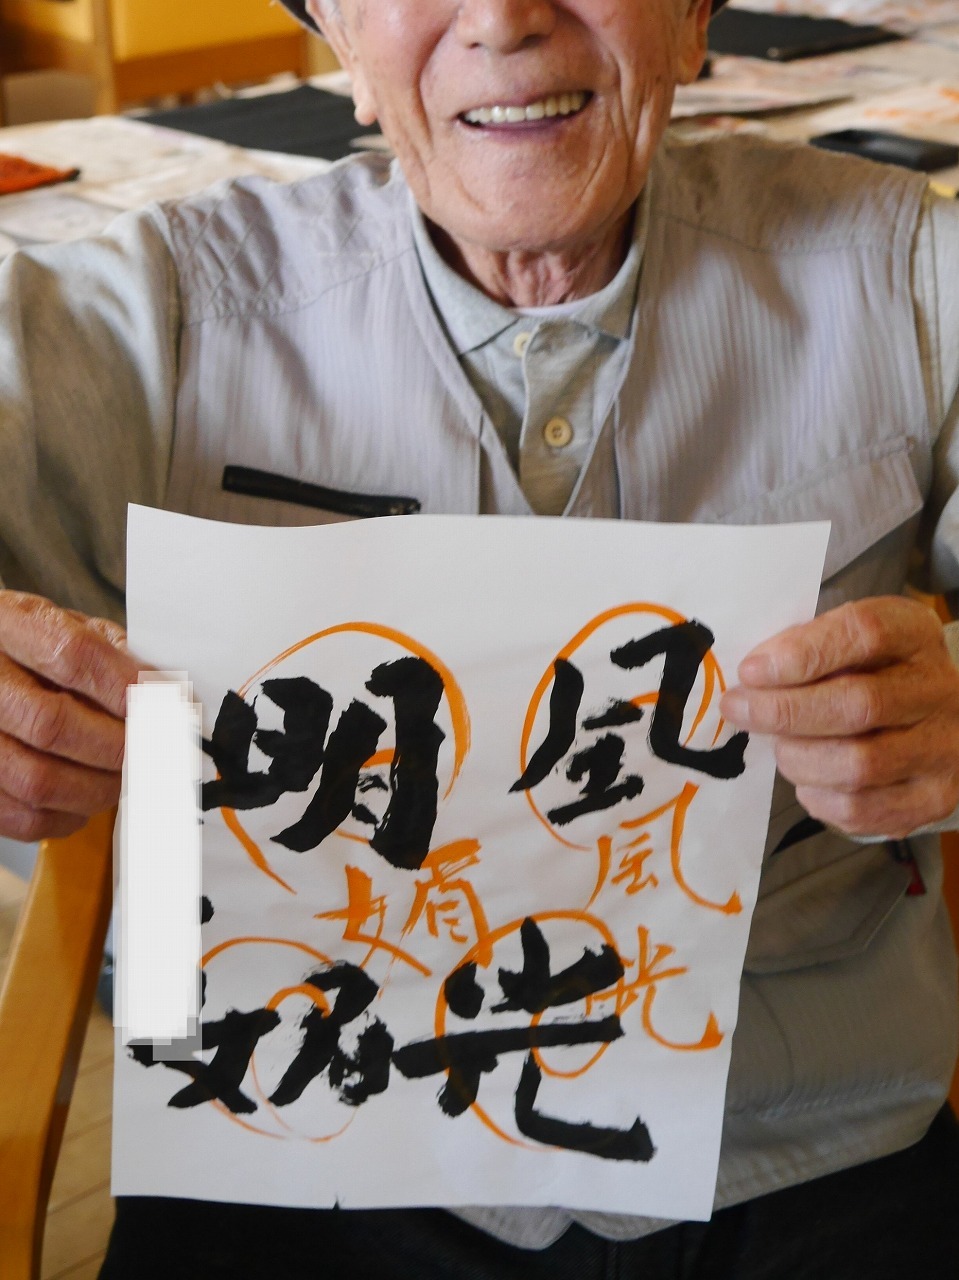 風光
明媚
風
光
媚